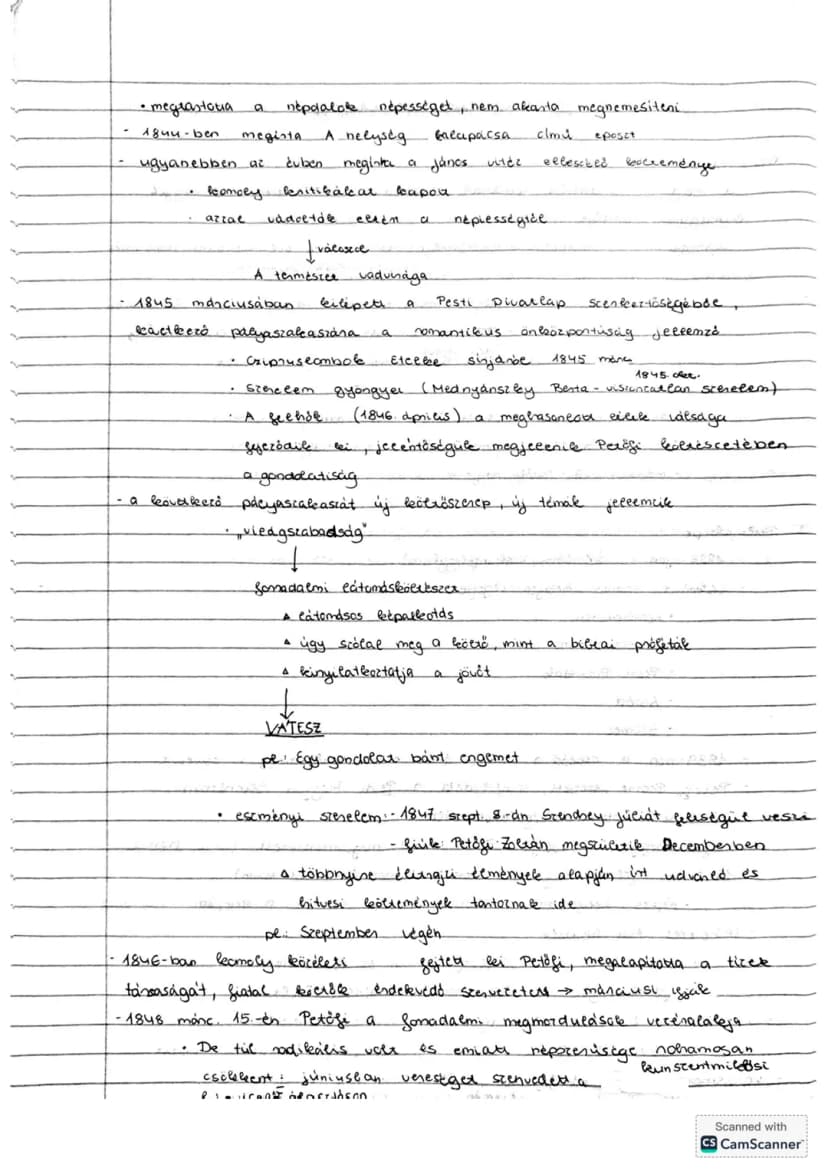 • megtartotta a népdalok népességét, nem akarta megnemesíteni
- 1844-ben megírta A helység kalapácsa című eposzt
- ugyanebben az évben megírta a János vitéz elbeszélő költeménye
• komoly kritikákat kapott
• azzal vádolták elérni a népiességtől
↓ válasza
A természet vadvirága
- 1845 márciusában kilépett a Pesti Divatlap szerkesztőségéből,
következő pályaszakaszára a romantikus önközpontúság jellemző
• Cipruslombok Etelke sírjáról 1845 márc
1845. okt.
• Szerelem gyöngyei (Mednyánszky Berta - viszonzatlan szerelem)
• A felhők (1846. április) a meghasonlott lélek válsága
fejeződik ki, jelentőségük megjelenik Petőfi költészetében
a gondolatiság
- a következő pályaszakaszát új költőszerep, új témák jellemzik
• "világszabadság"
↓
forradalmi látomásköltészet
▲ látomásos képalkotás
▲ úgy szólal meg a költő, mint a bibliai próféták
▲ kinyilatkoztatja a jövőt
↓
VÁTESZ
pl.: Egy gondolat bánt engemet
• eszményi szerelem: - 1847 szept. 8.-án Szendrey Júliát feleségül veszi
- fiúk: Petőfi Zoltán megszületik Decemberben
▲ többnyire életrajzi élmények alapján írt udvarló és
hitvesi költemények tartoznak ide
pl.: Szeptember végén
- 1846-ban komoly közéleti fejtett ki Petőfi, megalapította a tízek
társaságát, fiatal költők érdekvédő szervezetét → márciusi ifjak
- 1848 márc. 15.-én Petőfi a forradalmi megmozdulások vezéralakja
• De túl radikális volt és emiatt népszerűsége rohamosan
kunszentmiklósi
csökkent: júniusban vereséget szenvedett a
Scanned with
CS CamScanner